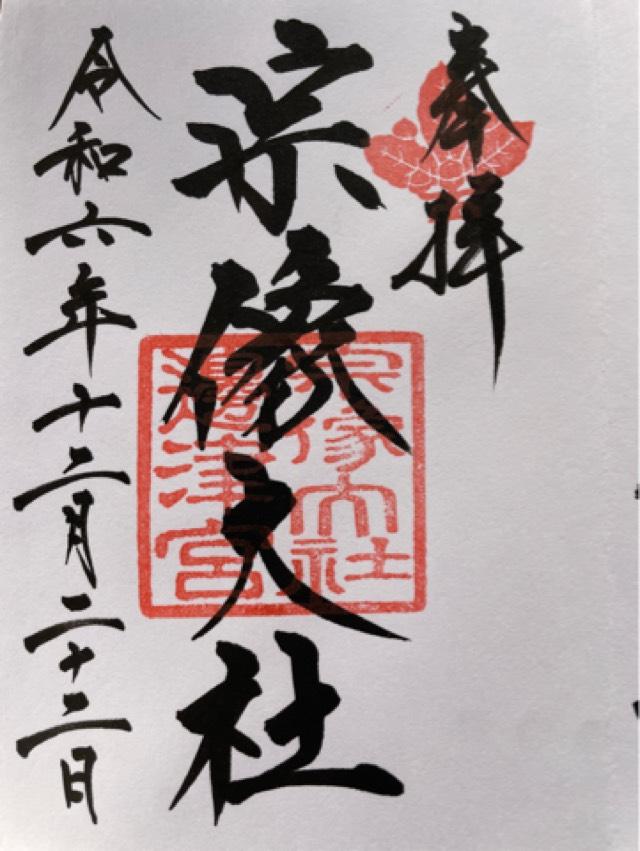 奉拝
宗像大社
宗像大社
邊津宮
令和六年十二月二十二日